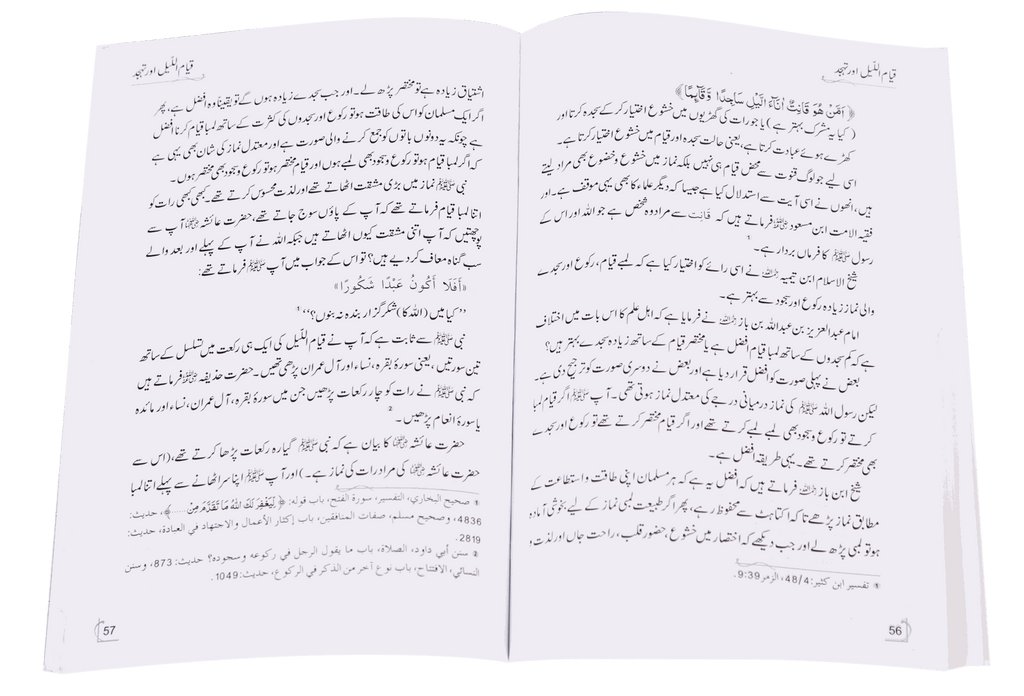 قیام اللیل اور تہجد
﴿ اَمَّنْ هُوَ قَانِتٌ اٰنَآءَ الَّيْلِ سَاجِدًا وَّقَآىِٕمًا﴾
(کیا یہ مشرک بہتر ہے) یا جو رات کی گھڑیوں میں خشوع اختیار کر کے سجدہ کرتا اور
کھڑے ہوئے عبادت کرتا ہے، یعنی حالت سجدہ اور قیام میں خشوع اختیار کرتا ہے۔
اسی لیے جو لوگ قنوت سے محض قیام ہی نہیں بلکہ نماز میں خشوع و خضوع بھی مراد لیتے
ہیں، انھوں نے اسی آیت سے استدلال کیا ہے جیسا کہ دیگر علماء کا بھی یہی موقف ہے۔ اور
فقیہ الامت ابن مسعود رضی اللہ عنہ فرماتے ہیں کہ قَانِتٌ سے مراد وہ شخص ہے جو اللہ اور اس کے
رسول ﷺ کا فرماں بردار ہے۔ ①
شیخ الاسلام ابن تیمیہ رحمہ اللہ نے اسی رائے کو اختیار کیا ہے کہ لمبے قیام، رکوع اور سجدے
والی نماز زیادہ رکوع اور سجود سے بہتر ہے۔
امام عبدالعزیز بن عبداللہ بن باز رحمہ اللہ نے فرمایا ہے کہ اہل علم کا اس بات میں اختلاف
ہے کہ کم سجدوں کے ساتھ لمبا قیام افضل ہے یا مختصر قیام کے ساتھ زیادہ سجدے بہتر ہیں؟
بعض نے پہلی صورت کو افضل قرار دیا ہے اور بعض نے دوسری صورت کو ترجیح دی ہے۔
لیکن رسول اللہ ﷺ کی نماز درمیانی درجے کی معتدل نماز ہوتی تھی۔ آپ ﷺ اگر قیام لمبا
کرتے تو رکوع و سجود بھی لمبے لمبے کرتے تھے اور اگر قیام مختصر کرتے تھے تو رکوع اور سجدے
بھی مختصر کرتے تھے۔ یہی طریقہ افضل ہے۔
شیخ ابن باز رحمہ اللہ فرماتے ہیں کہ افضل یہ ہے کہ ہر مسلمان اپنی طاقت و استطاعت کے
مطابق نماز پڑھے تاکہ اکتاہٹ سے محفوظ رہے، پھر اگر طبیعت لمبی نماز کے لیے بخوشی آمادہ
ہو تو لمبی پڑھ لے اور جب دیکھے کہ اختصار میں خشوع، حضور قلب، راحت جاں اور لذت و
① تفسیر ابن کثیر: 48/4، الزمر 9:39۔
56
قیام اللیل اور تہجد
اشتیاق زیادہ ہے تو مختصر پڑھ لے۔ اور جب سجدے زیادہ ہوں گے تو یقیناً وہ افضل ہے، پھر
اگر ایک مسلمان کو اس کی طاقت ہو تو رکوع اور سجدوں کی کثرت کے ساتھ لمبا قیام کرنا افضل
ہے چونکہ یہ دونوں باتوں کو جمع کرنے والی صورت ہے اور معتدل نماز کی شان بھی یہی ہے
کہ اگر لمبا قیام ہو تو رکوع و سجود بھی لمبے ہوں اور قیام مختصر ہو تو رکوع و سجود بھی مختصر ہوں۔
نبی ﷺ نماز میں بڑی مشقت اٹھاتے تھے اور لذت محسوس کرتے تھے۔ کبھی کبھی رات کو
اتنا لمبا قیام فرماتے تھے کہ آپ کے پاؤں سوج جاتے تھے، حضرت عائشہ رضی اللہ عنہا آپ سے
پوچھتیں کہ آپ اتنی مشقت کیوں اٹھاتے ہیں جبکہ اللہ نے آپ کے پہلے اور بعد والے
سب گناہ معاف کر دیے ہیں؟ تو اس کے جواب میں آپ ﷺ فرماتے تھے:
«أَفَلَا أَكُونُ عَبْدًا شَكُورًا»
”کیا میں (اللہ کا) شکر گزار بندہ نہ بنوں؟“ ①
نبی ﷺ سے ثابت ہے کہ آپ نے قیام اللیل کی ایک ہی رکعت میں تسلسل کے ساتھ
تین سورتیں، یعنی سورۂ بقرہ، نساء اور آل عمران پڑھی تھیں۔ حضرت حذیفہ رضی اللہ عنہ فرماتے ہیں
کہ نبی ﷺ نے رات کو چار رکعات پڑھیں جن میں سورۂ بقرہ، آل عمران، نساء اور مائدہ
یا سورۂ انعام پڑھیں۔ ②
حضرت عائشہ رضی اللہ عنہا کا بیان ہے کہ نبی ﷺ گیارہ رکعات پڑھا کرتے تھے، (اس سے
حضرت عائشہ رضی اللہ عنہا کی مراد رات کی نماز ہے۔) اور آپ ﷺ اپنا سر اٹھانے سے پہلے اتنا لمبا
① صحيح البخاري، التفسير، سورة الفتح، باب قوله: ﴿ لِيَغْفِرَ لَكَ اللهُ مَا تَقَدَّمَ مِنْ.....﴾، حديث:
4836، وصحيح مسلم، صفات المنافقين، باب إكثار الأعمال والاجتهاد في العبادة، حديث:
2819.
② سنن أبي داود، الصلاة، باب ما يقول الرجل في ركوعه وسجوده؟ حديث: 873، وسنن
النسائي، الافتتاح، باب نوع آخر من الذكر في الركوع، حديث: 1049.
57